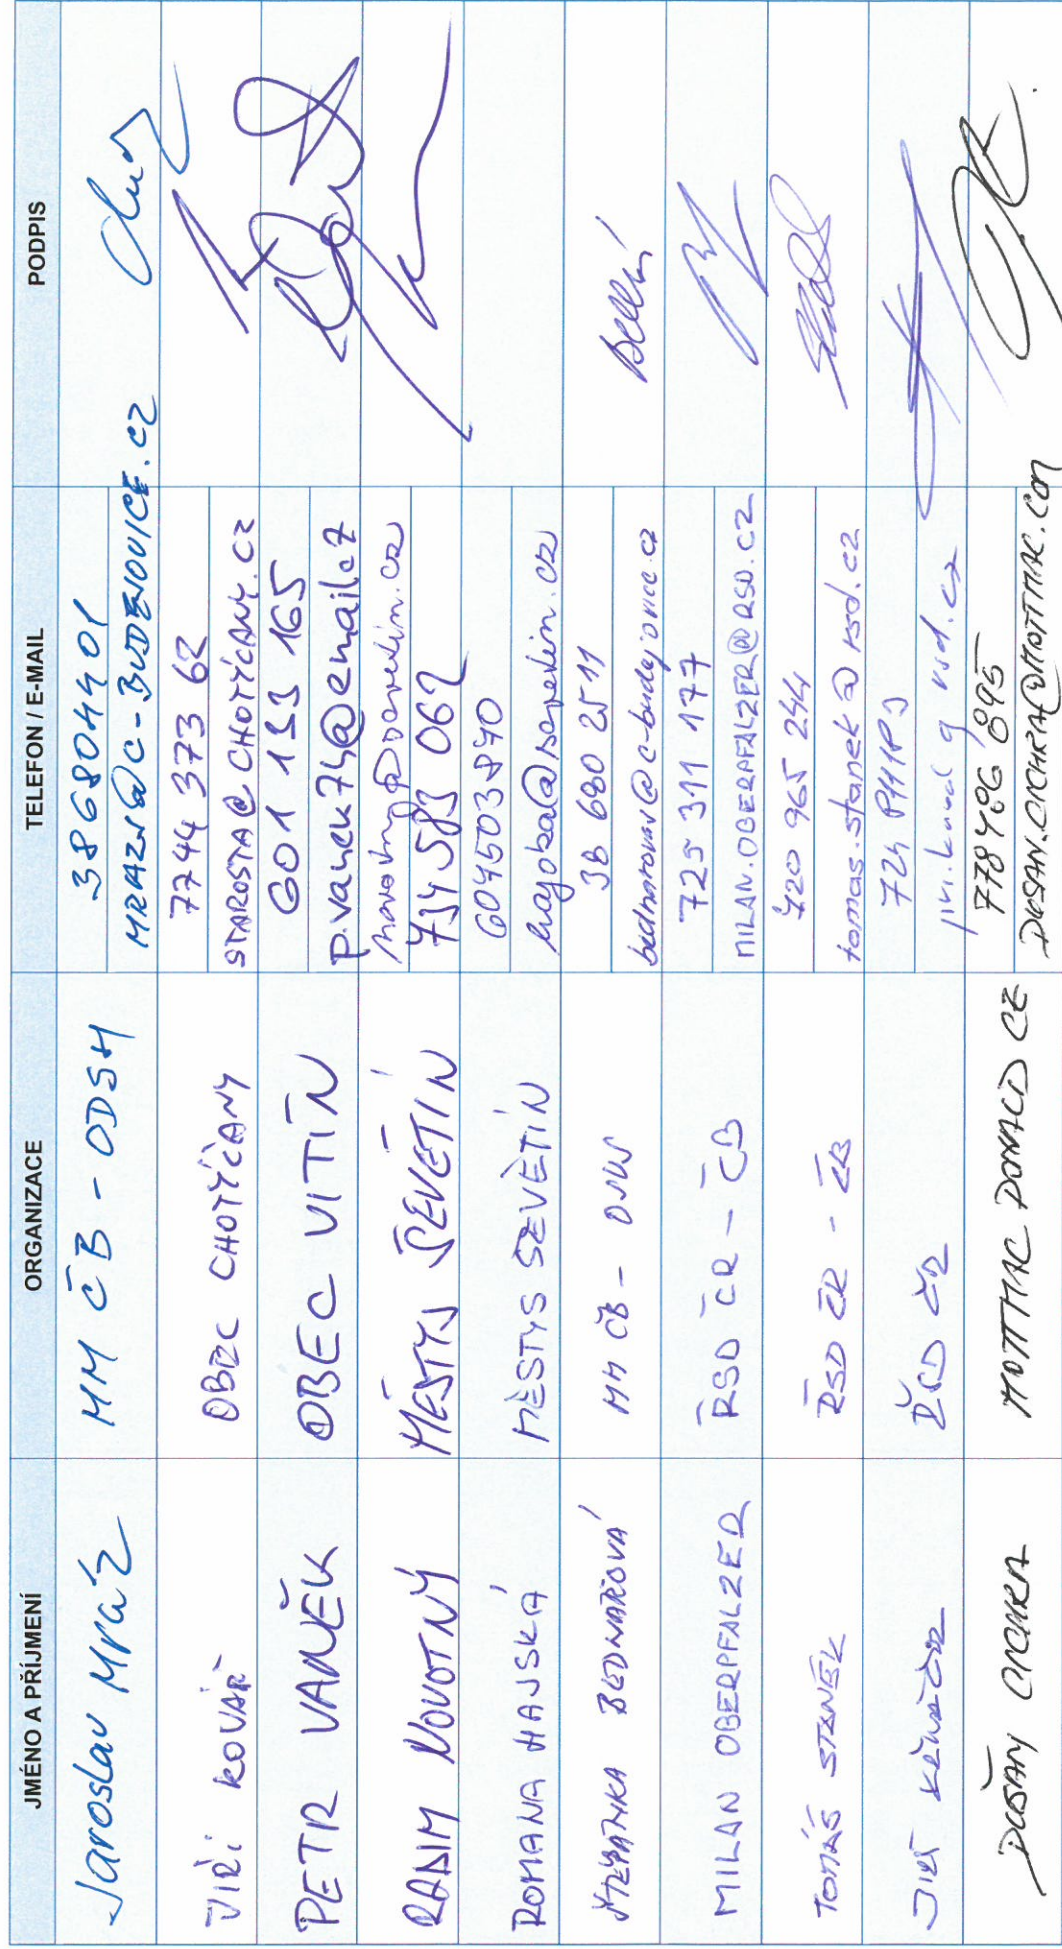 JMÉNO A PŘÍJMENÍ ORGANIZACE TELEFON / E-MAIL PODPIS
Jaroslav Mráz MM ČB - ODSH 386804401
MRAZJ@C-BUDEJOVICE.CZ
JIŘÍ KOVÁŘ OBEC CHOTÝČANY 7744 373 62
STAROSTA@CHOTYCANY.CZ
PETR VANĚK OBEC VITÍN 601 133 165
p.vanek74@email.cz
RADIM NOVOTNÝ MĚSTYS ŠEVĚTÍN novotny@sevetin.cz
734 583 062
ROMANA HAJSKÁ MĚSTYS ŠEVĚTÍN 604503840
hajska@sevetin.cz
ŠTĚPÁNKA BEDNAŘOVÁ MM ČB - 38 680 2511
bednarovas@c-budejovice.cz
MILAN OBERPFALZER ŘSD ČR - ČB 725 311 177
MILAN.OBERPFALZER@RSD.CZ
TOMÁŠ STANĚK ŘSD ČR - ČB 720 965 244
tomas.stanek@rsd.cz
JIŘÍ ŘSD ČR 724
DUŠAN CICHRA HOTTMAC DONALD CZ 778 486 895